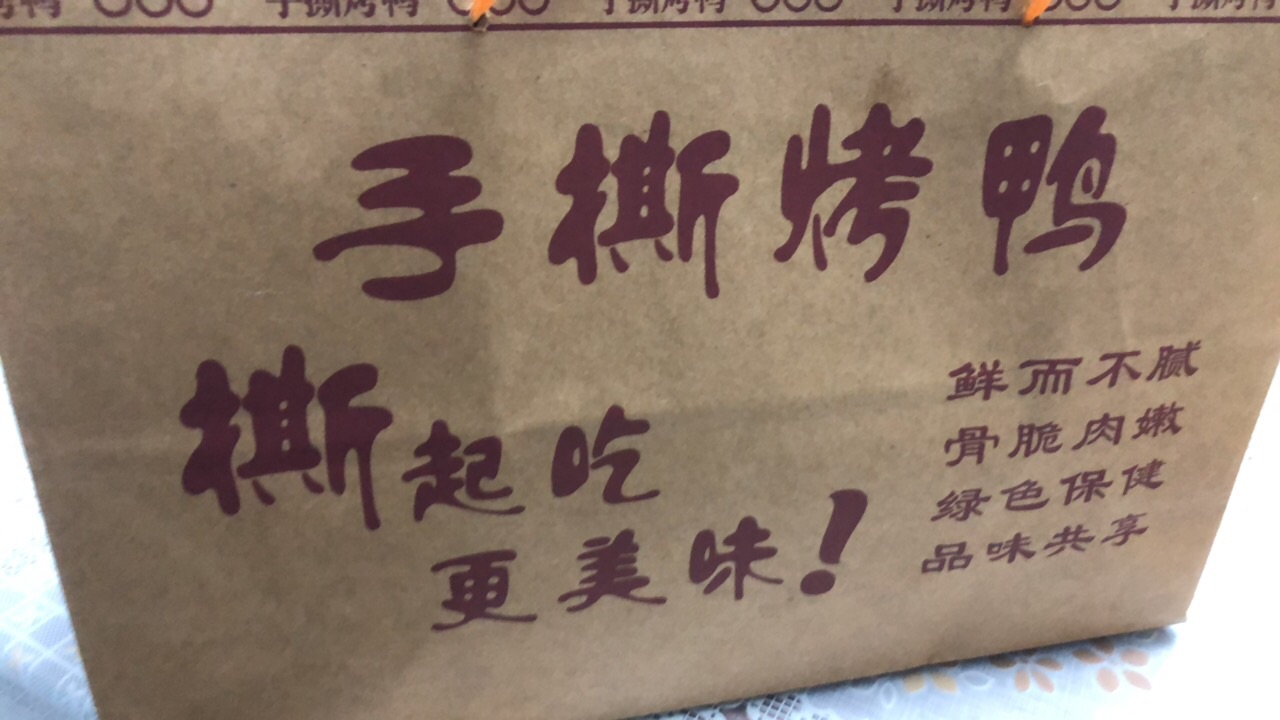 手撕烤鸭 手撕烤鸭 手撕烤鸭 手撕烤鸭 手撕烤鸭
手撕烤鸭
撕起吃
更美味!
鲜而不腻
骨脆肉嫩
绿色保健
品味共享